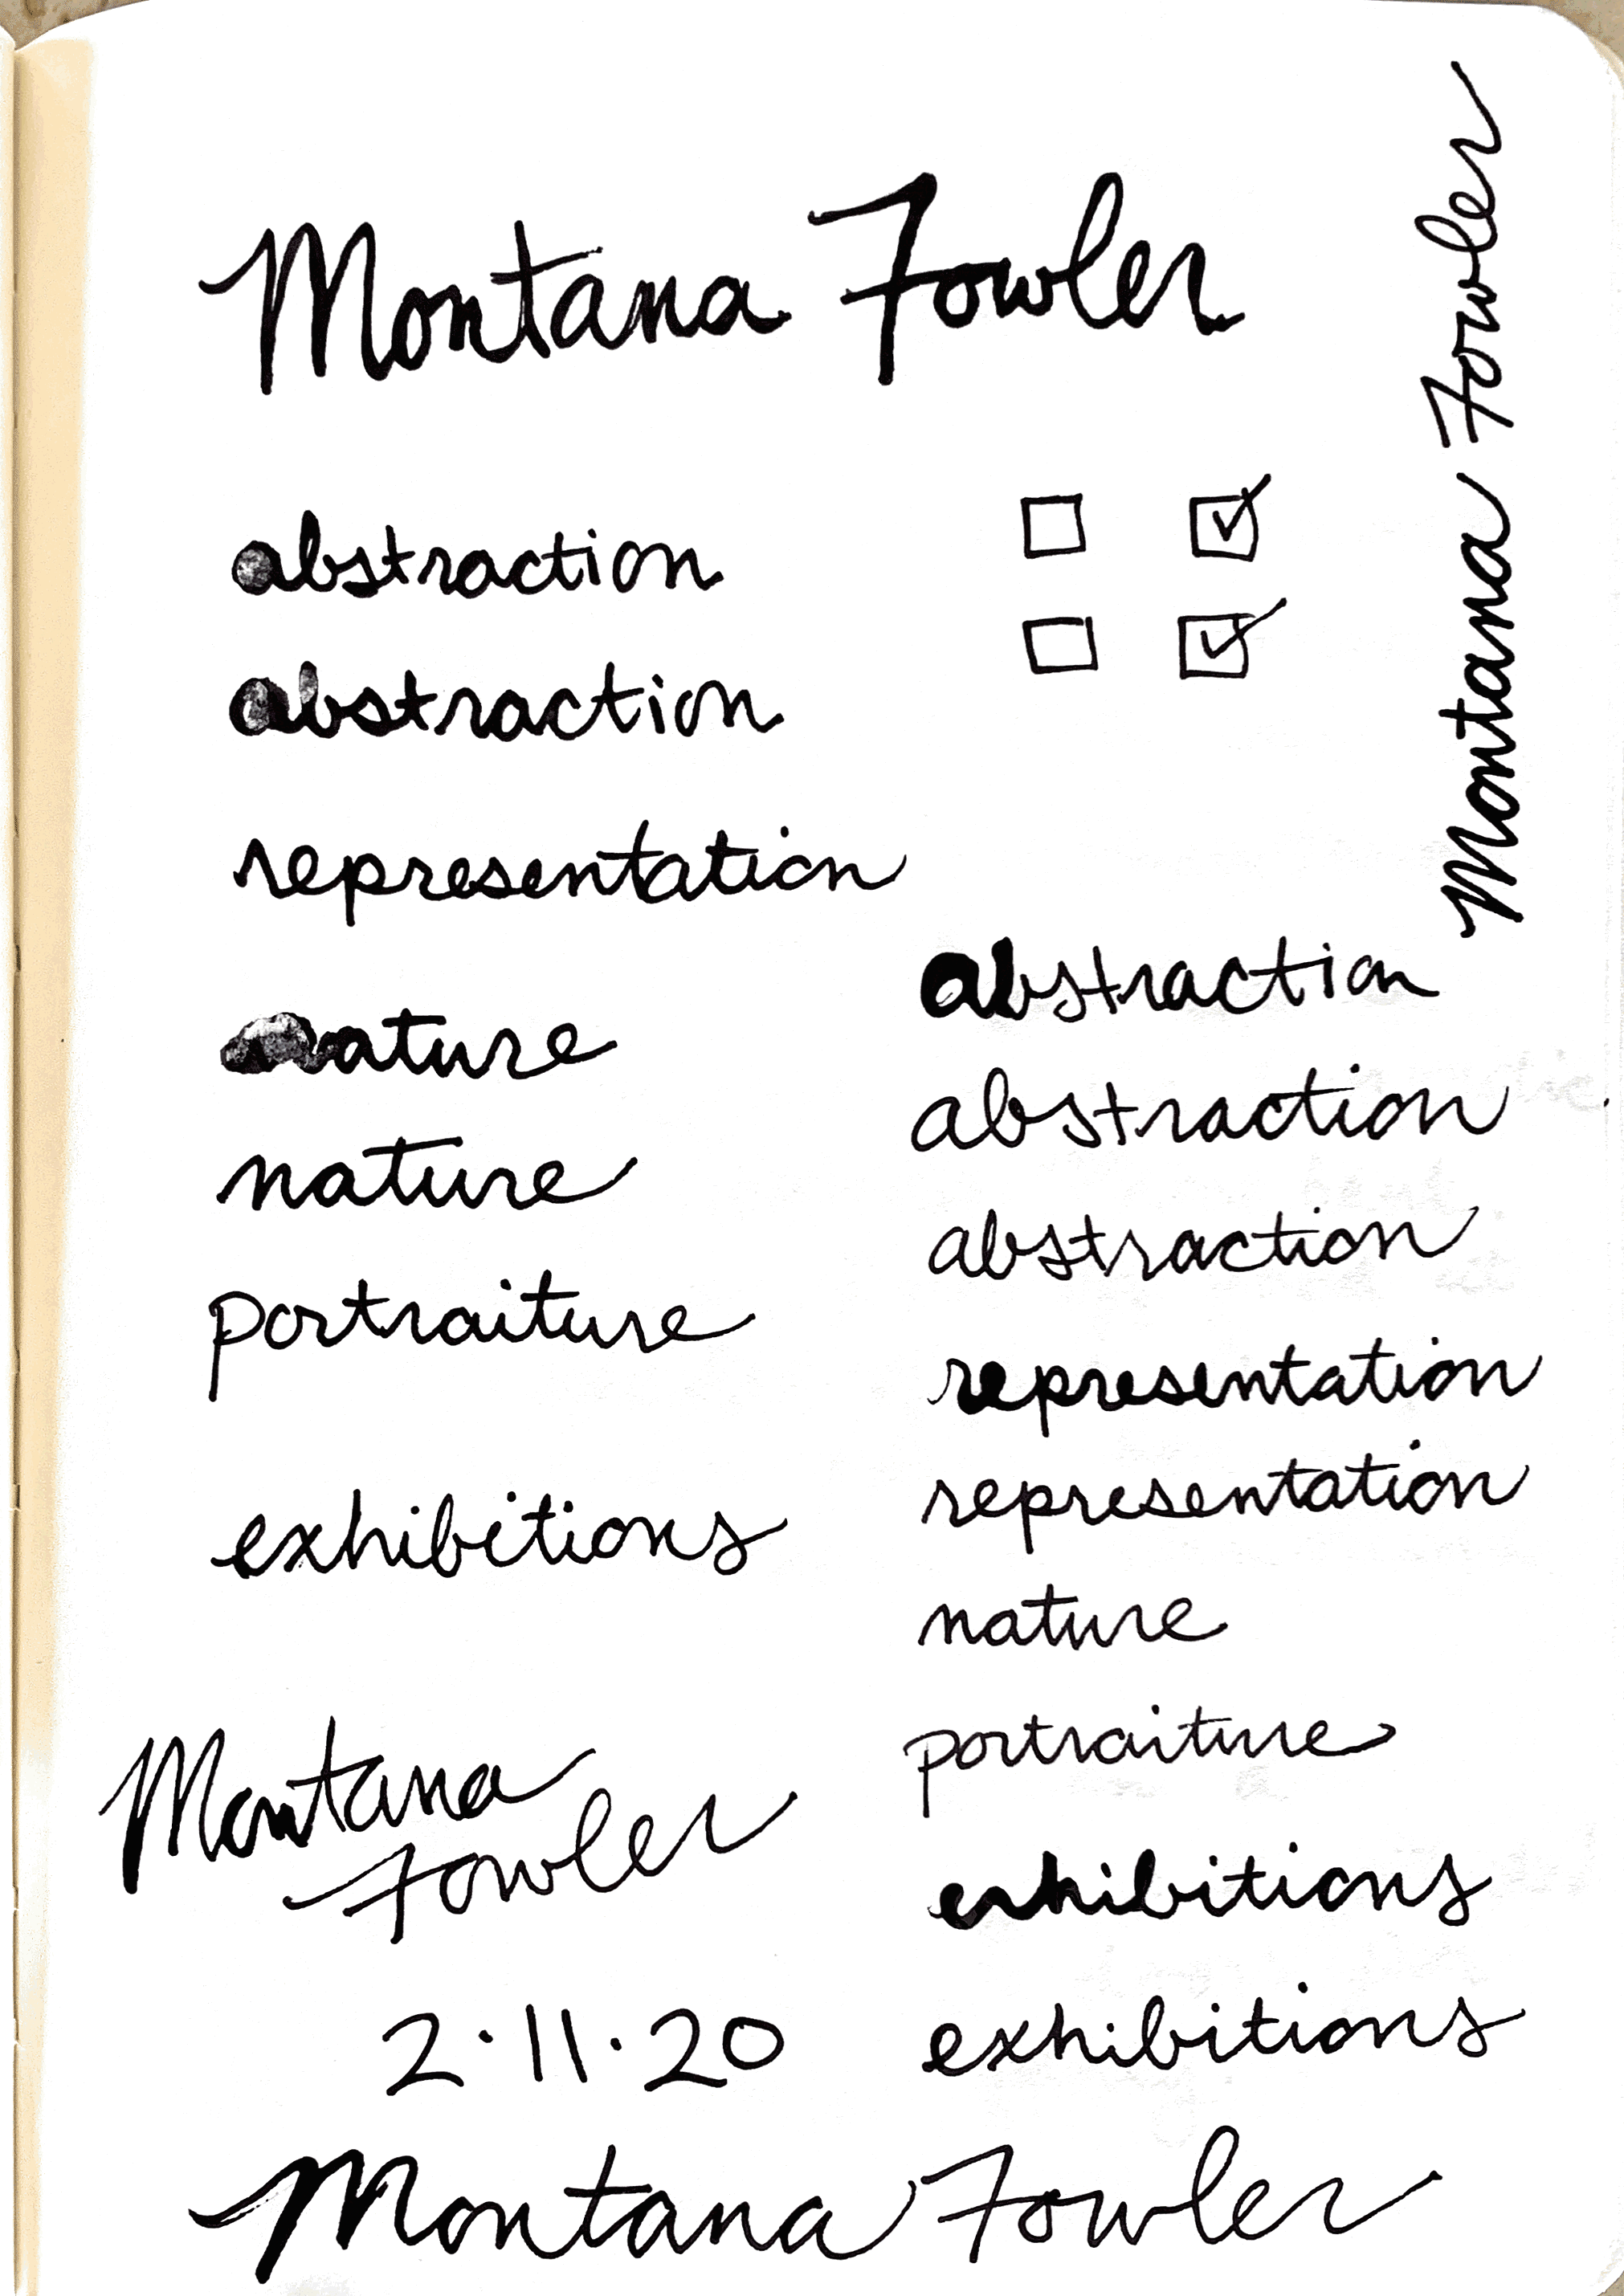 Montana Fowler
abstraction
abstraction
representation
nature
nature
portraiture
exhibitions
Montana
Fowler
2·11·20
Montana Fowler
abstraction
abstraction
abstraction
representation
representation
nature
portraiture
exhibitions
exhibitions
Montana Fowler